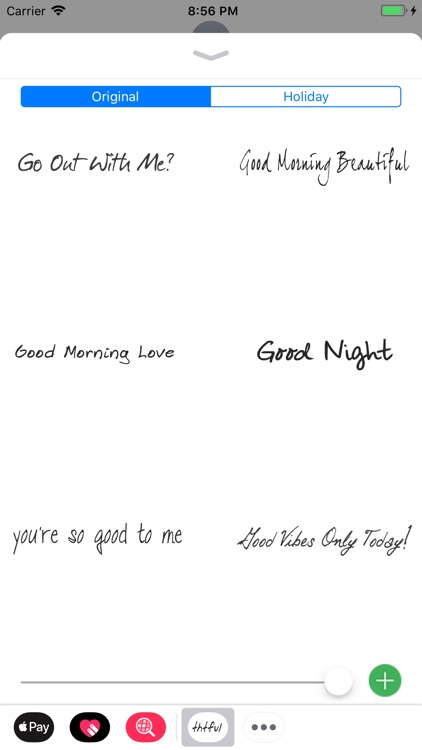 Carrier 8:56 PM
Original Holiday
Go Out With Me? Good Morning Beautiful
Good Morning Love Good Night
you're so good to me Good Vibes Only Today!
Pay thtful